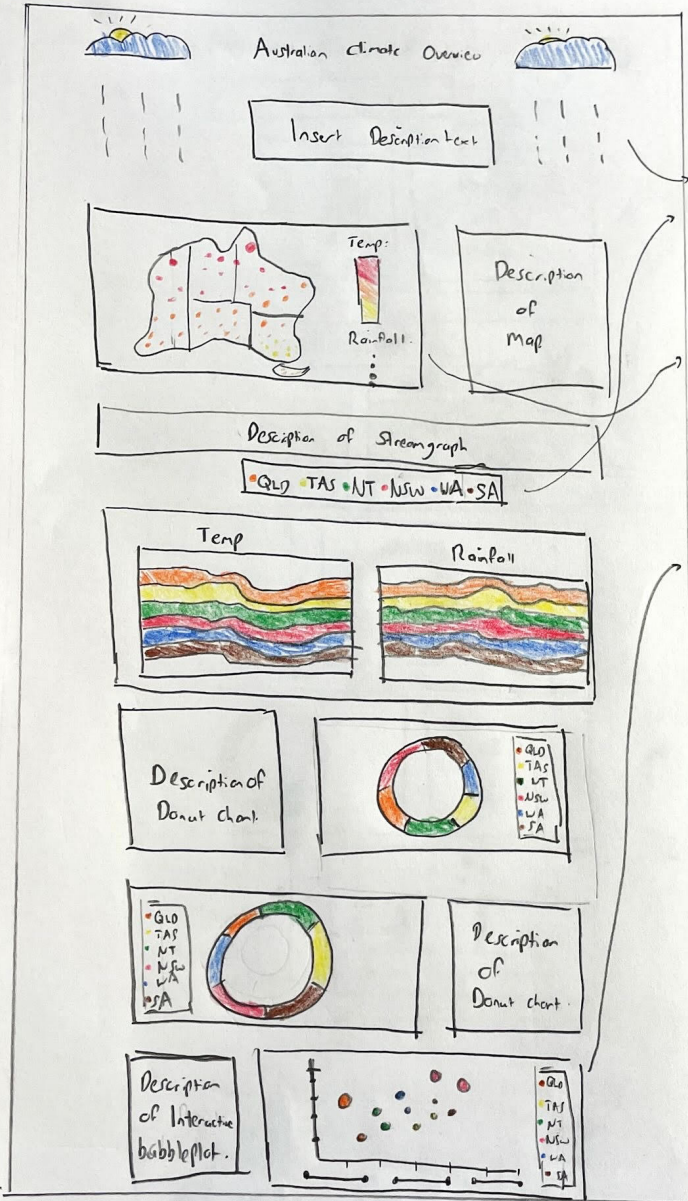 Australian Climate Overview
Insert Description text
Temp:
Rainfall.
Description
of
Map
Desciption of Streamgraph
QLD TAS NT NSW WA SA
Temp
Rainfall
Description of
Donut chart.
QLD
TAS
NT
NSW
WA
SA
QLD
TAS
NT
NSW
WA
SA
Description
of
Donut chart.
Description
of Interactive
babbleplot.
QLD
TAS
NT
NSW
WA
SA